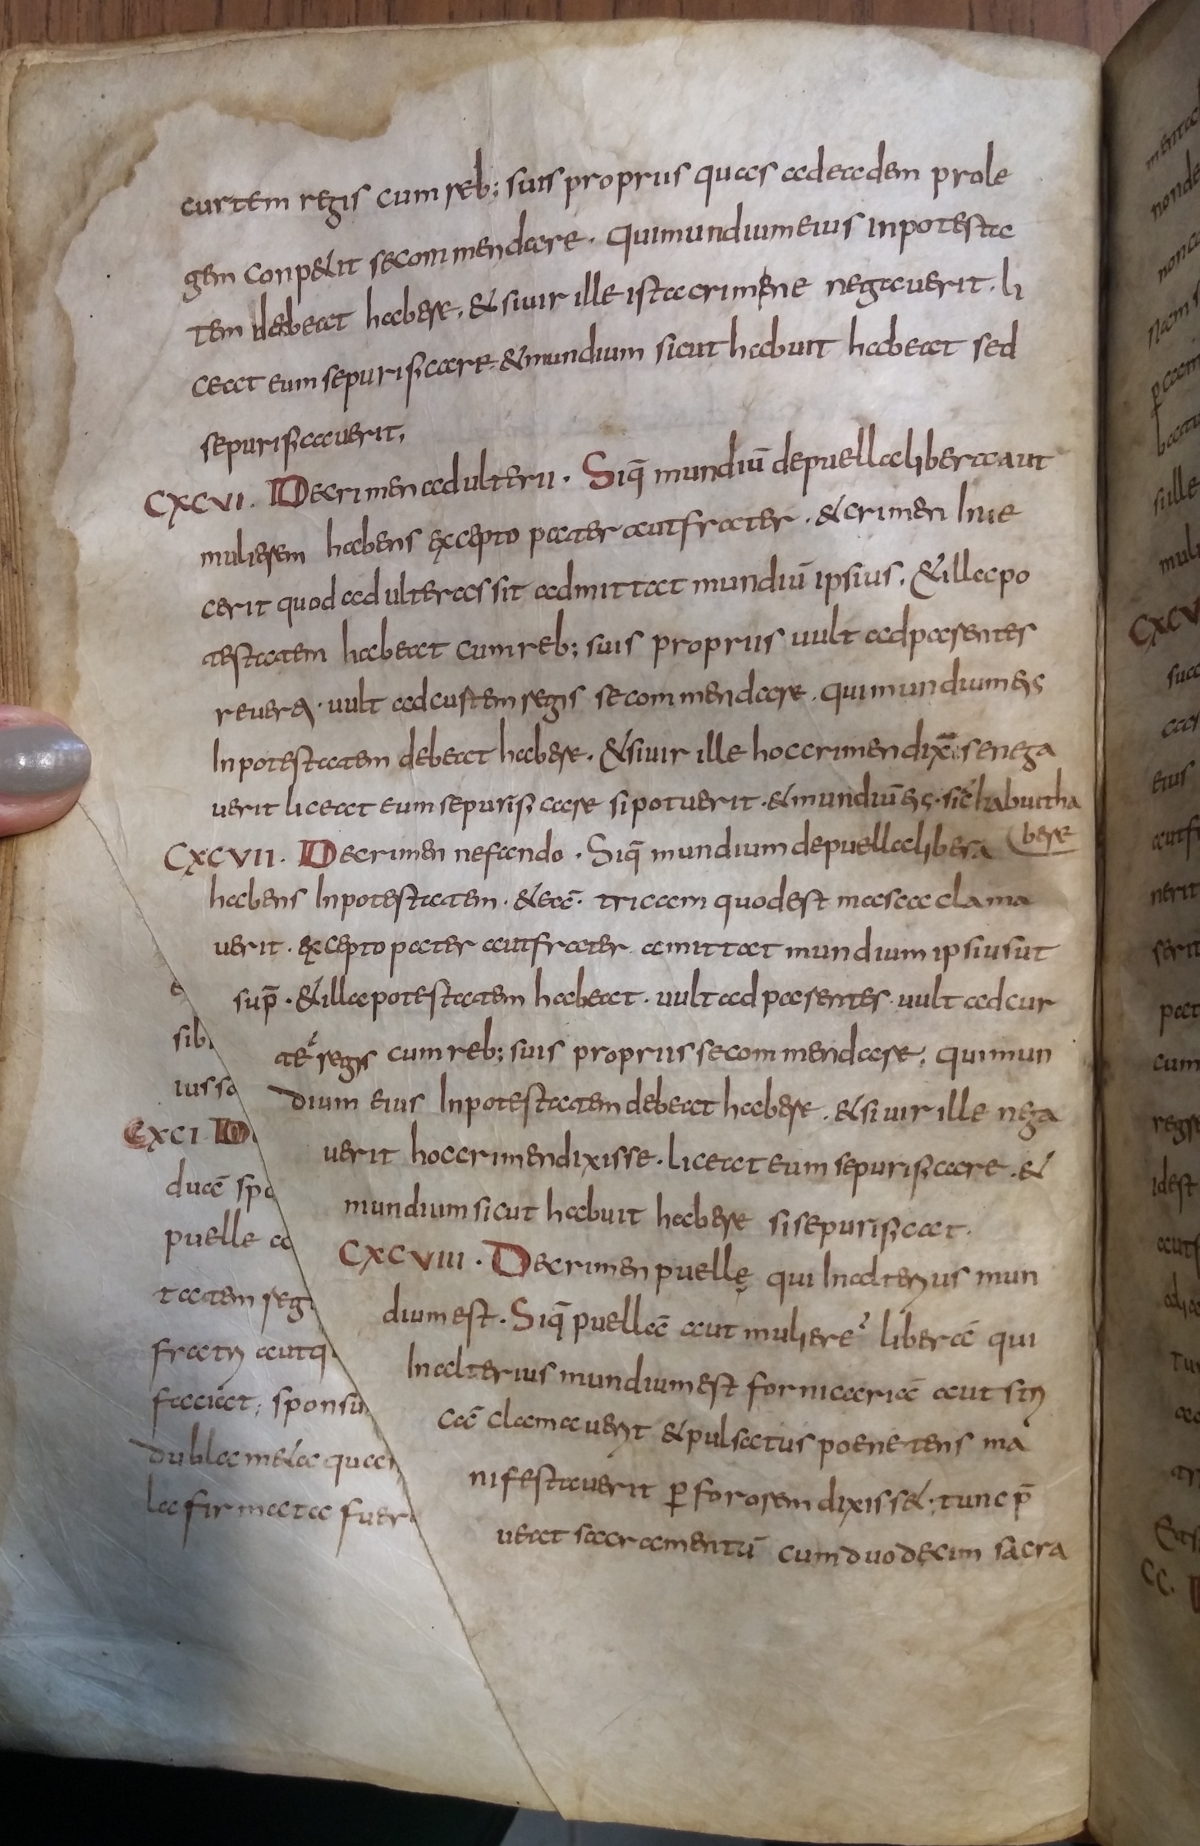 curtem regis cum reb; suis propriis quas ad eadem prole
gem conpellit se commendare. Qui mundium eius in potesta
tem debeat habere. & si vir ille ista crimene negaverit. li
ceat eum se purificare & mundium sicut habuit habeat sed
se purificaverit,
CXCVI. De crimen adulterii. Siq̄ mundiū de puella libera aut
mulierem habens excepto pater aut frater. & crimen In ie
cerit quod adulteras sit admittat mundiū ipsius. & illa po
testatem habeat cum reb; suis propriis vult ad parentes
vult ad curtem regis se commendare. qui mundium eis
In potestatem debeat habere. & si vir ille hoc crimen dixis se nega
verit liceat eum se purificare si potuerit. & mundiū eis. sic habuit ha
bere
CXCVII. De crimen nefando. Siq̄ mundium de puella libera
habens In potestatem. & eā. tricam quod est masca clama
verit. excepto pater aut frater amittat mundium ipsius ut
sup̄. & illa potestatem habeat. vult ad parentes. vult ad cur
te regis cum reb; suis propriis se commendare; qui mun
dium eius In potestatem debeat habere. & si vir ille nega
verit hoc crimen dixisse. liceat eum se purificare. &
mundium sicut habuit habere si se purificat.
CXCVIII. De crimen puellę qui In alterius mun
dium est. Siq̄ puellā aut muliere liberā qui
In alterius mundium est fornicariā aut strı
cā clamaverit & pulsatus poenetens ma
nifestaverit ꝑ furorem dixissé; tunc p̄
veat sacramentū cum duodecim sacra
sib
ius sa
CXCI De
ducē spo
puelle a
tatem regi
frater aut q
faciat; sponsu
dubla meta qua
la firmata fuer